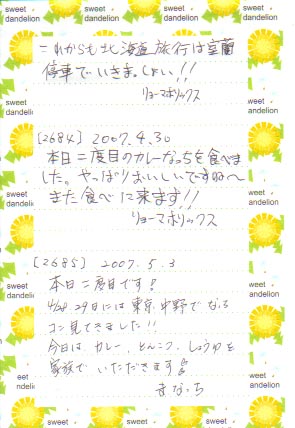 これからも北海道旅行は室蘭
停車でいきましょい!!
リョーマホリックス
[2684] 2007.4.30
本日二度目のカレーなっちを食べま
した。やっぱりおいしいですね〜
また食べに来ます!!
リョーマホリックス
[2685] 2007.5.3
本日二度目です!
4/28.29日には東京.中野でなっち
コン見てきました!!
今日は、カレー、とんこつ、しょうゆを
家族でいただきます
まなっち
sweet
dandelion